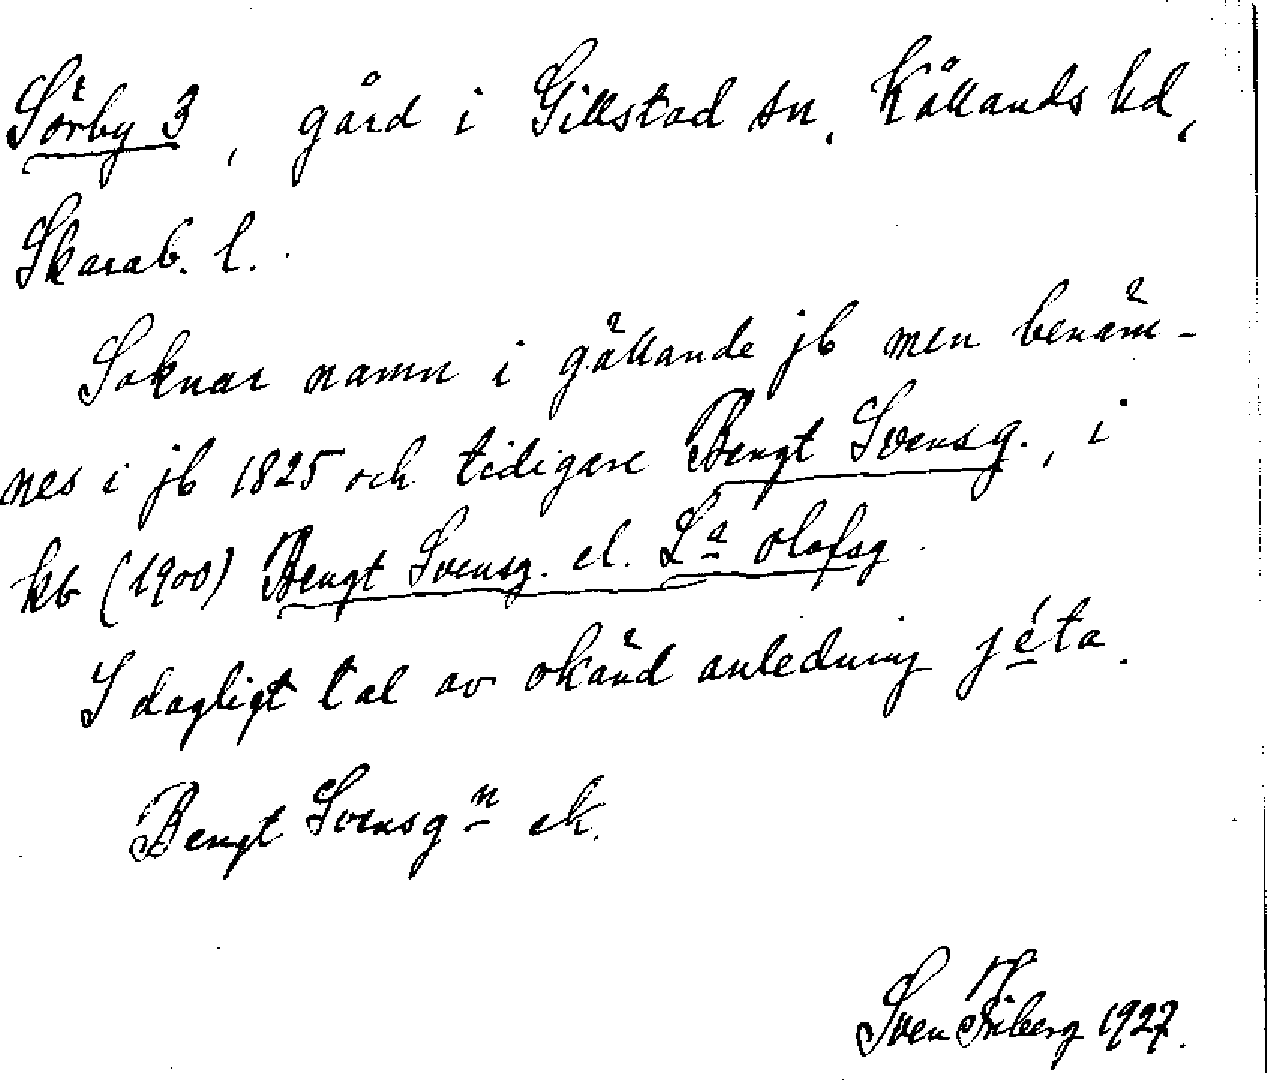 Sörby 3, gård i Gillstad sn. Kållands hd,
Skarab. l.
Saknar namn i gällande jb men benäm-
nes i jb 1825 och tidigare Bengt Svensg., i
kb (1900) Bengt Svensg. el. La Olofsg
I dagligt tal av okänd anledning jéta.
Bengt Svensgn ek.
Sven Friberg 1927.